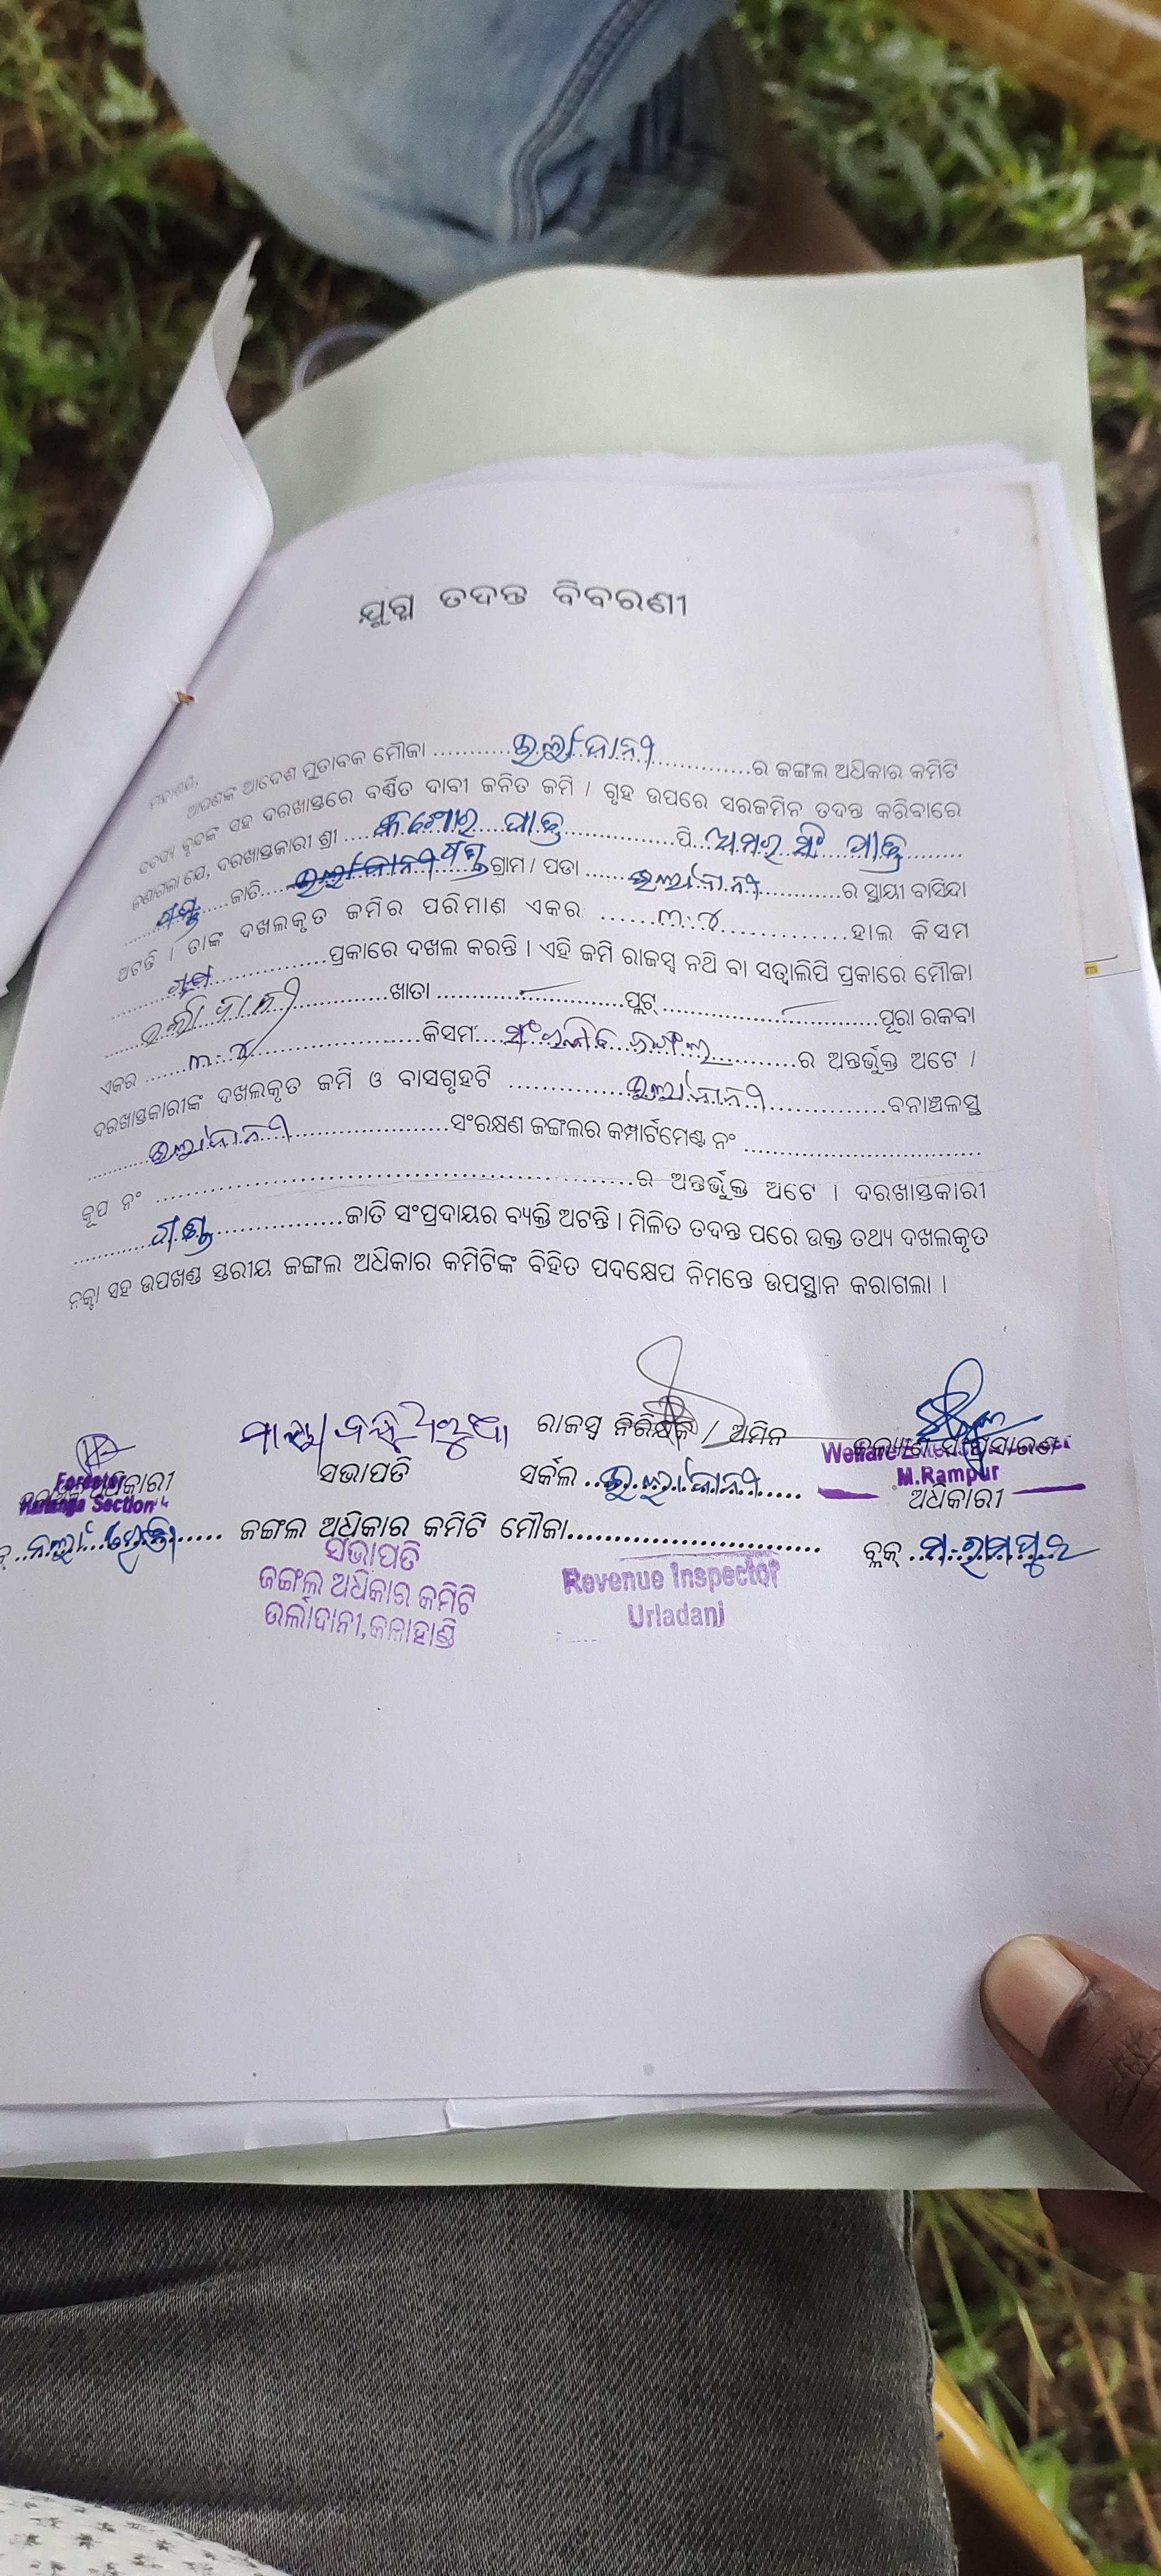 ଯୁଗ୍ମ ତଦନ୍ତ ବିବରଣୀ
ମହାଶୟ,
ଆପଣଙ୍କ ଆଦେଶ ମୁତାବକ ମୌଜା ........... ଉର୍ଲାଦାନୀ ............ର ଜଙ୍ଗଲ ଅଧିକାର କମିଟି
ସଦସ୍ୟ ବୃନ୍ଦଙ୍କ ସହ ଦରଖାସ୍ତରେ ବର୍ଣ୍ଣିତ ଦାବୀ ଜନିତ ଜମି / ଗୃହ ଉପରେ ସରଜମିନ ତଦନ୍ତ କରିବାରେ
ଜଣାଗଲା ଯେ, ଦରଖାସ୍ତକାରୀ ଶ୍ରୀ ..... କିଶୋର ପାତ୍ର ............ପି.. ଅମର ସିଂ ପାତ୍ର ......
........ ଗଣ୍ଡ .....ଜାତି..... ଗଣ୍ଡ ଗ୍ରାମ / ପଡା ....... ଉର୍ଲାଦାନୀ ...........ର ସ୍ଥାୟୀ ବାସିନ୍ଦା
ଅଟନ୍ତି । ତାଙ୍କ ଦଖଲକୃତ ଜମିର ପରିମାଣ ଏକର ...... ୩.୪ ..............ହାଲ କିସମ
...................ପ୍ରକାରେ ଦଖଲ କରନ୍ତି । ଏହି ଜମି ରାଜସ୍ୱ ନଥି ବା ସତ୍ୱାଲିପି ପ୍ରକାରେ ମୌଜା
..... ଉର୍ଲାଦାନୀ ...........ଖାତା ......................ପ୍ଲଟ୍ ........................ପୂରା ରକବା
ଏକର ...... ୩.୪ ................କିସମ..... ଜଙ୍ଗଲ ...........ର ଅନ୍ତର୍ଭୁକ୍ତ ଅଟେ /
ଦରଖାସ୍ତକାରୀଙ୍କ ଦଖଲକୃତ ଜମି ଓ ବାସଗୃହଟି ............ ଉର୍ଲାଦାନୀ ............ବନାଞ୍ଚଳସ୍ଥ
....... ଉର୍ଲାଦାନୀ ..................ସଂରକ୍ଷଣ ଜଙ୍ଗଲର କମ୍ପାର୍ଟମେଣ୍ଟ ନଂ ............................
କୂପ ନଂ ....................................................ର ଅନ୍ତର୍ଭୁକ୍ତ ଅଟେ । ଦରଖାସ୍ତକାରୀ
......... ଗଣ୍ଡ ..............ଜାତି ସଂପ୍ରଦାୟର ବ୍ୟକ୍ତି ଅଟନ୍ତି । ମିଳିତ ତଦନ୍ତ ପରେ ଉକ୍ତ ତଥ୍ୟ ଦଖଲକୃତ
ନକ୍ସା ସହ ଉପଖଣ୍ଡ ସ୍ତରୀୟ ଜଙ୍ଗଲ ଅଧିକାର କମିଟିଙ୍କ ବିହିତ ପଦକ୍ଷେପ ନିମନ୍ତେ ଉପସ୍ଥାନ କରାଗଲା ।
ରାଜସ୍ୱ ନିରିକ୍ଷକ / ଅମିନ
ସଭାପତି ସର୍କଲ .. ଉର୍ଲାଦାନୀ ......
Forester
Section
Welfare
M.Rampur
ଅଧିକାରୀ
ଜଙ୍ଗଲ ଅଧିକାର କମିଟି ମୌଜା..............................
ବ୍ଲକ୍ .. ମ.ରାମପୁର
ସଭାପତି
ଜଙ୍ଗଲ ଅଧିକାର କମିଟି
ଉର୍ଲାଦାନୀ,କଳାହାଣ୍ଡି
Revenue Inspector
Urladani